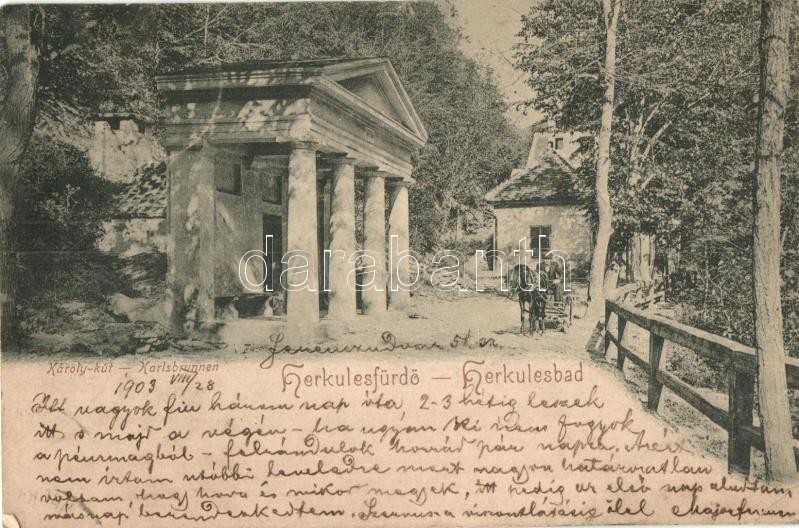 darabanth.com
Károly-kút — Karlsbrunnen
Ferenczudvar 51 sz
Herkulesfürdő — Herkulesbad
1903 VIII/28
Itt vagyok fiu három nap óta 2-3 hétig leszek
itt s majd a végén — ha ugyan ki nem fogyok
a pénzmagból — felrándulok hozzád pár napra. Azért
nem irtam utóbbi leveledre mert nagyon határozatlan
voltam, hogy hova és mikor megyek, itt pedig az első nap aludtam
másnap berendezkedtem. Szervusz a viszontlátásig ölel